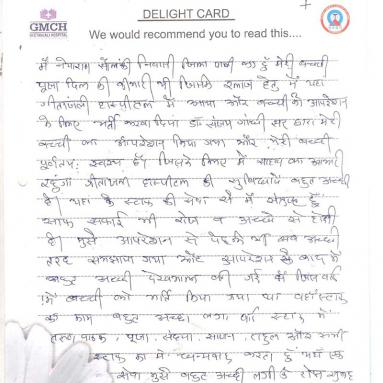 GMCH
GEETANJALI HOSPITAL
DELIGHT CARD
We would recommend you to read this....
मैं सोलंकी निवासी जिला पाली का हूँ मेरी बच्ची
पूजा दिल की बीमारी थी जिसके इलाज हेतु मैं यहा
गीतांजली हास्पीटल में आया और बच्ची को आपरेशन
के लिए भर्ती करवा दिया डॉ संजय गांधी सर द्वारा मेरी
बच्ची का आपरेशन किया गया और मेरी बच्ची
पूर्णतया स्वस्थ है जिसके लिए में साहब का आभारी
रहूंगा गीतांजली हास्पीटल की सुविधाये बहुत अच्छी
है। यहा के स्टाफ की सेवा से में हूँ
साफ सफाई भी रोज व अच्छे से होती
है। मुझे आपरेशन से पहले भी सब अच्छी
तरह समझाया गया और आपरेशन के बाद में
बहुत अच्छी देखभाल की गई के जिस वार्ड
में बच्ची को भर्ती किया गया था वहाँ स्टाफ
का काम बहुत अच्छा लगा स्टाफ में
पूजा, संध्या, राहुल और सभी
स्टाफ का में धन्यवाद करता हूँ यहाँ
सेवा मुझे बहुत अच्छी लगी